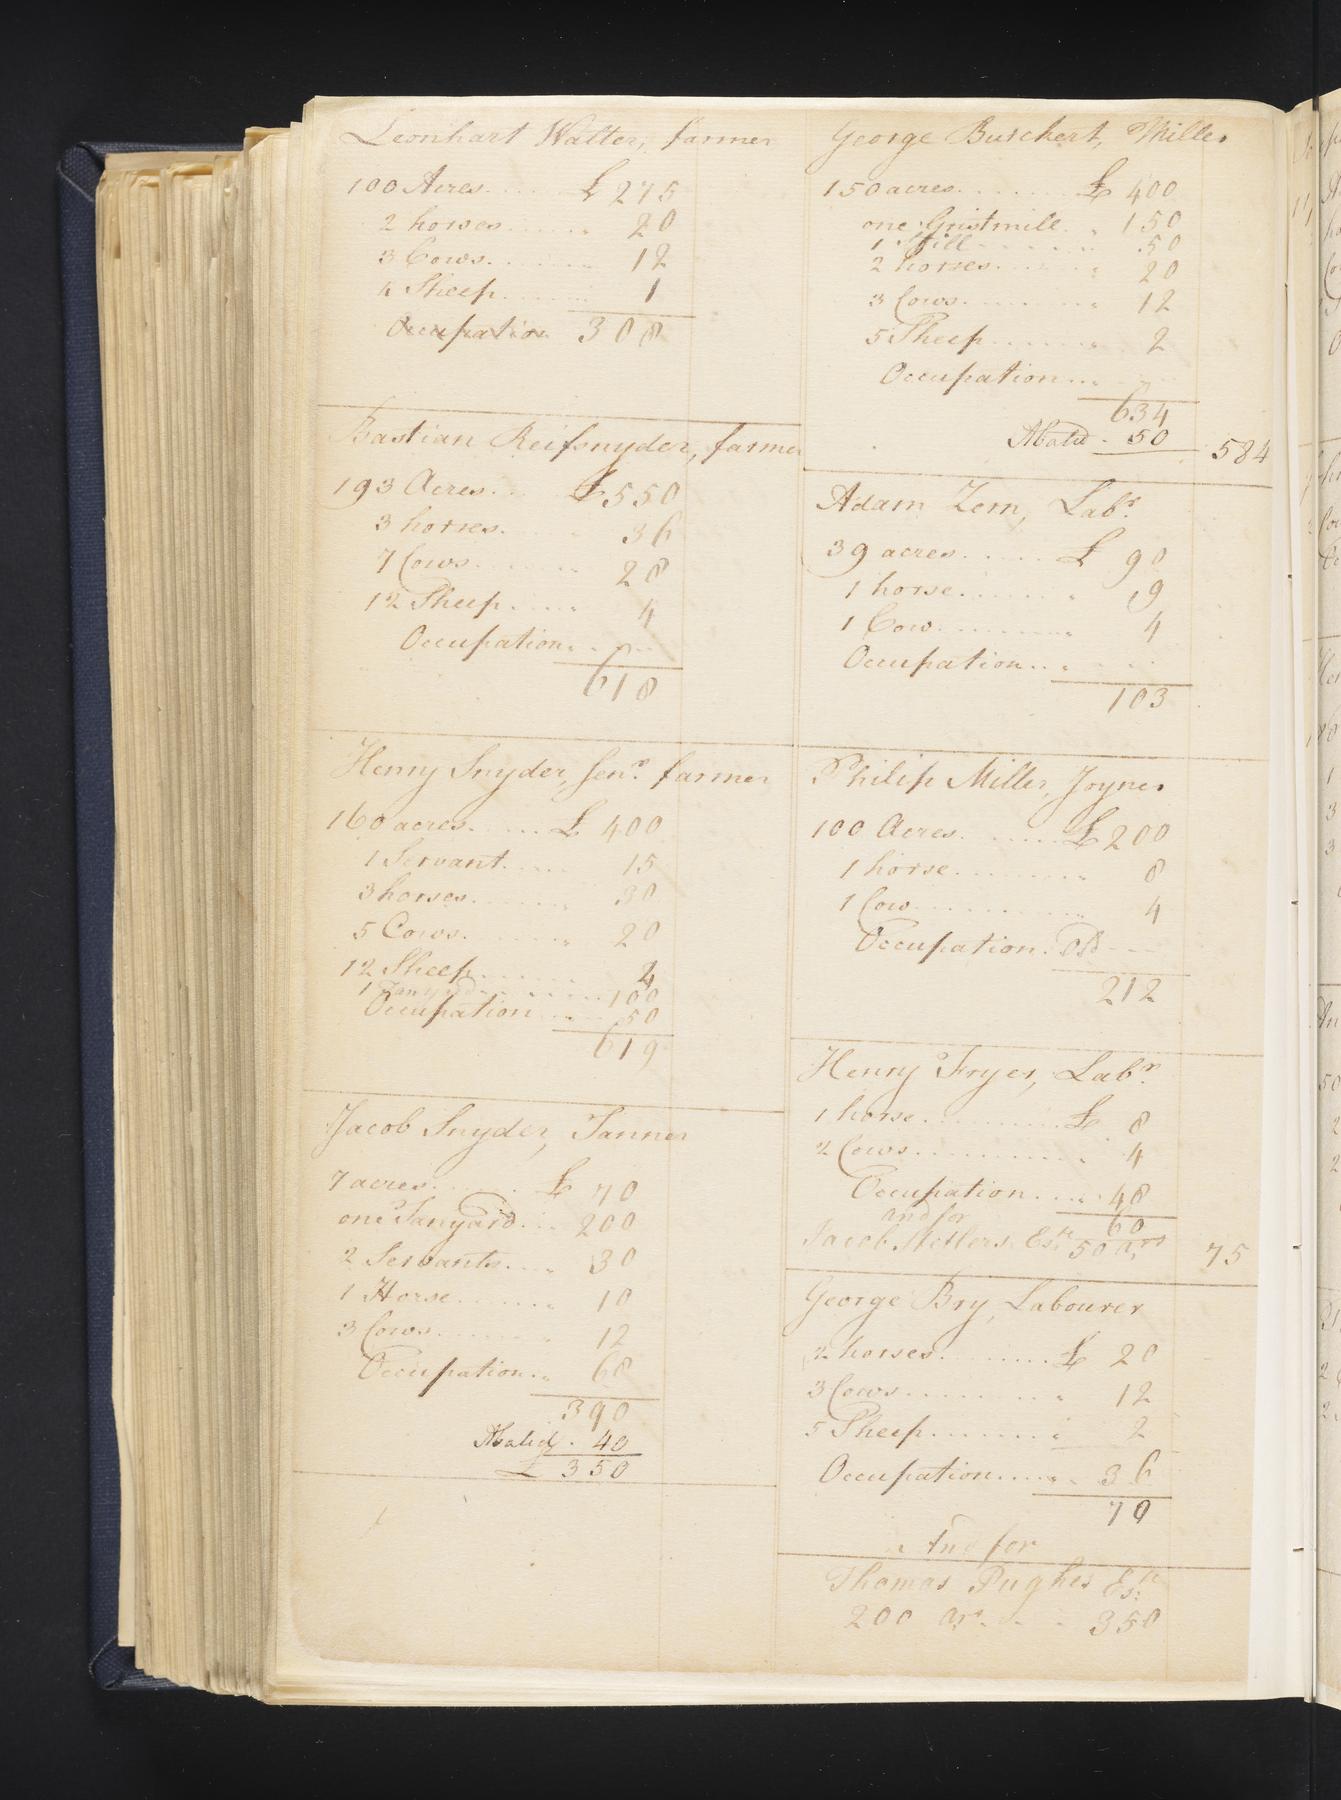 Leonhart Walter, farmer
100 Acres..... £ 275
2 horses...... 20
3 Cows...... 12
4 Sheep...... 1
Occupation 308
Bastian Reifsnyder, farmer
193 Acres... £ 550
3 horses.... 36
7 Cows..... 28
12 Sheep.... 4
Occupation....
618
Henry Snyder, Senr. farmer
160 acres..... £ 400
1 Servant.... 15
3 horses..... 30
5 Cows..... 20
12 Sheep..... 4
1 Tanyard..... 100
Occupation... 50
619
Jacob Snyder, Tanner
7 acres..... £ 70
one Tanyard... 200
2 Servants... 30
1 Horse..... 10
3 Cows..... 12
Occupation.. 68
390
Abated. 40
£ 350
George Burchert, Miller
150 acres...... £ 400
one Gristmill.. 150
1 Still...... 50
2 horses...... 20
3 Cows...... 12
5 Sheep...... 2
Occupation....
634
Abated. 50 584
Adam Zern, Labr.
39 acres..... £ 90
1 horse...... 9
1 Cow...... 4
Occupation....
103
Philip Miller, Joyner
100 Acres...... £ 200
1 horse...... 8
1 Cow...... 4
Occupation. old
212
Henry Fryer, Labr.
1 horse...... £ 8
2 Cows...... 4
Occupation.... 48
and for 60
Jacob Estte 50 ars 75
George Bry, Labourer
2 horses...... £ 20
3 Cows...... 12
5 Sheep...... 2
Occupation.... 36
70
And for
Thomas Pughes Estte
200 ars... 350